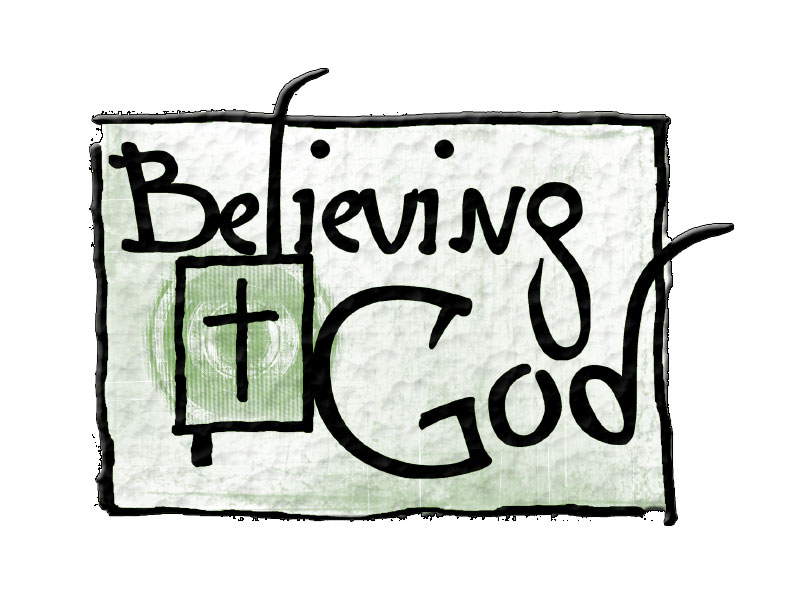 Believing
God